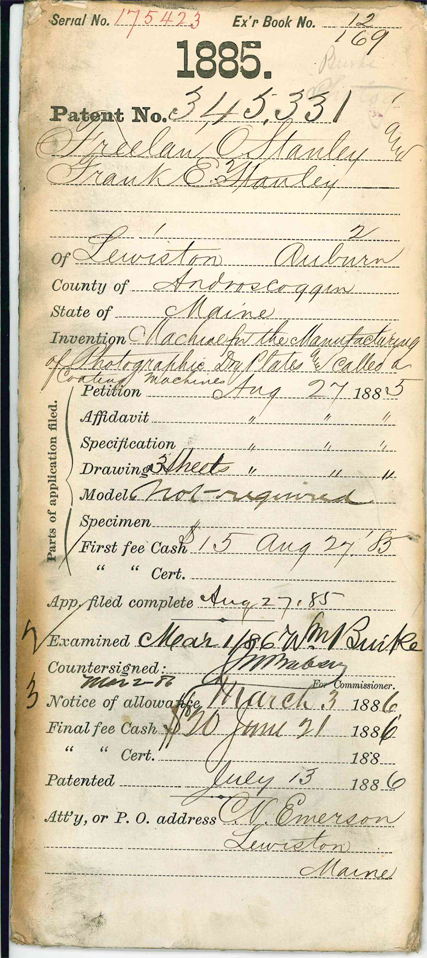 Serial No. 175423 Ex'r Book No. 12
169
1885.
Patent No. 345,331
Freelan O. Stanley and
Frank E. Stanley
1 2
Of Lewiston Auburn
County of Androscoggin
State of Maine
Invention Machine for the Manufacturing
of Photographic Dry Plates called a
Coating Machines
Parts of application filed.
Petition Aug 27 1885
Affidavit " " "
Specification " " "
Drawing 3 Sheets " " "
Model Not required
Specimen "
First fee Cash $15 Aug 27, '85
" " Cert.
App. filed complete Aug 27, 85
2 Examined Mar 1/86 Wm Burke
Countersigned:
Mar 2-86 For Commissioner.
3 Notice of allowance March 3 1886
Final fee Cash $20 June 21 1886
" " Cert. 188
Patented July 13 1886
Att'y, or P. O. address C. V. Emerson
Lewiston
Maine